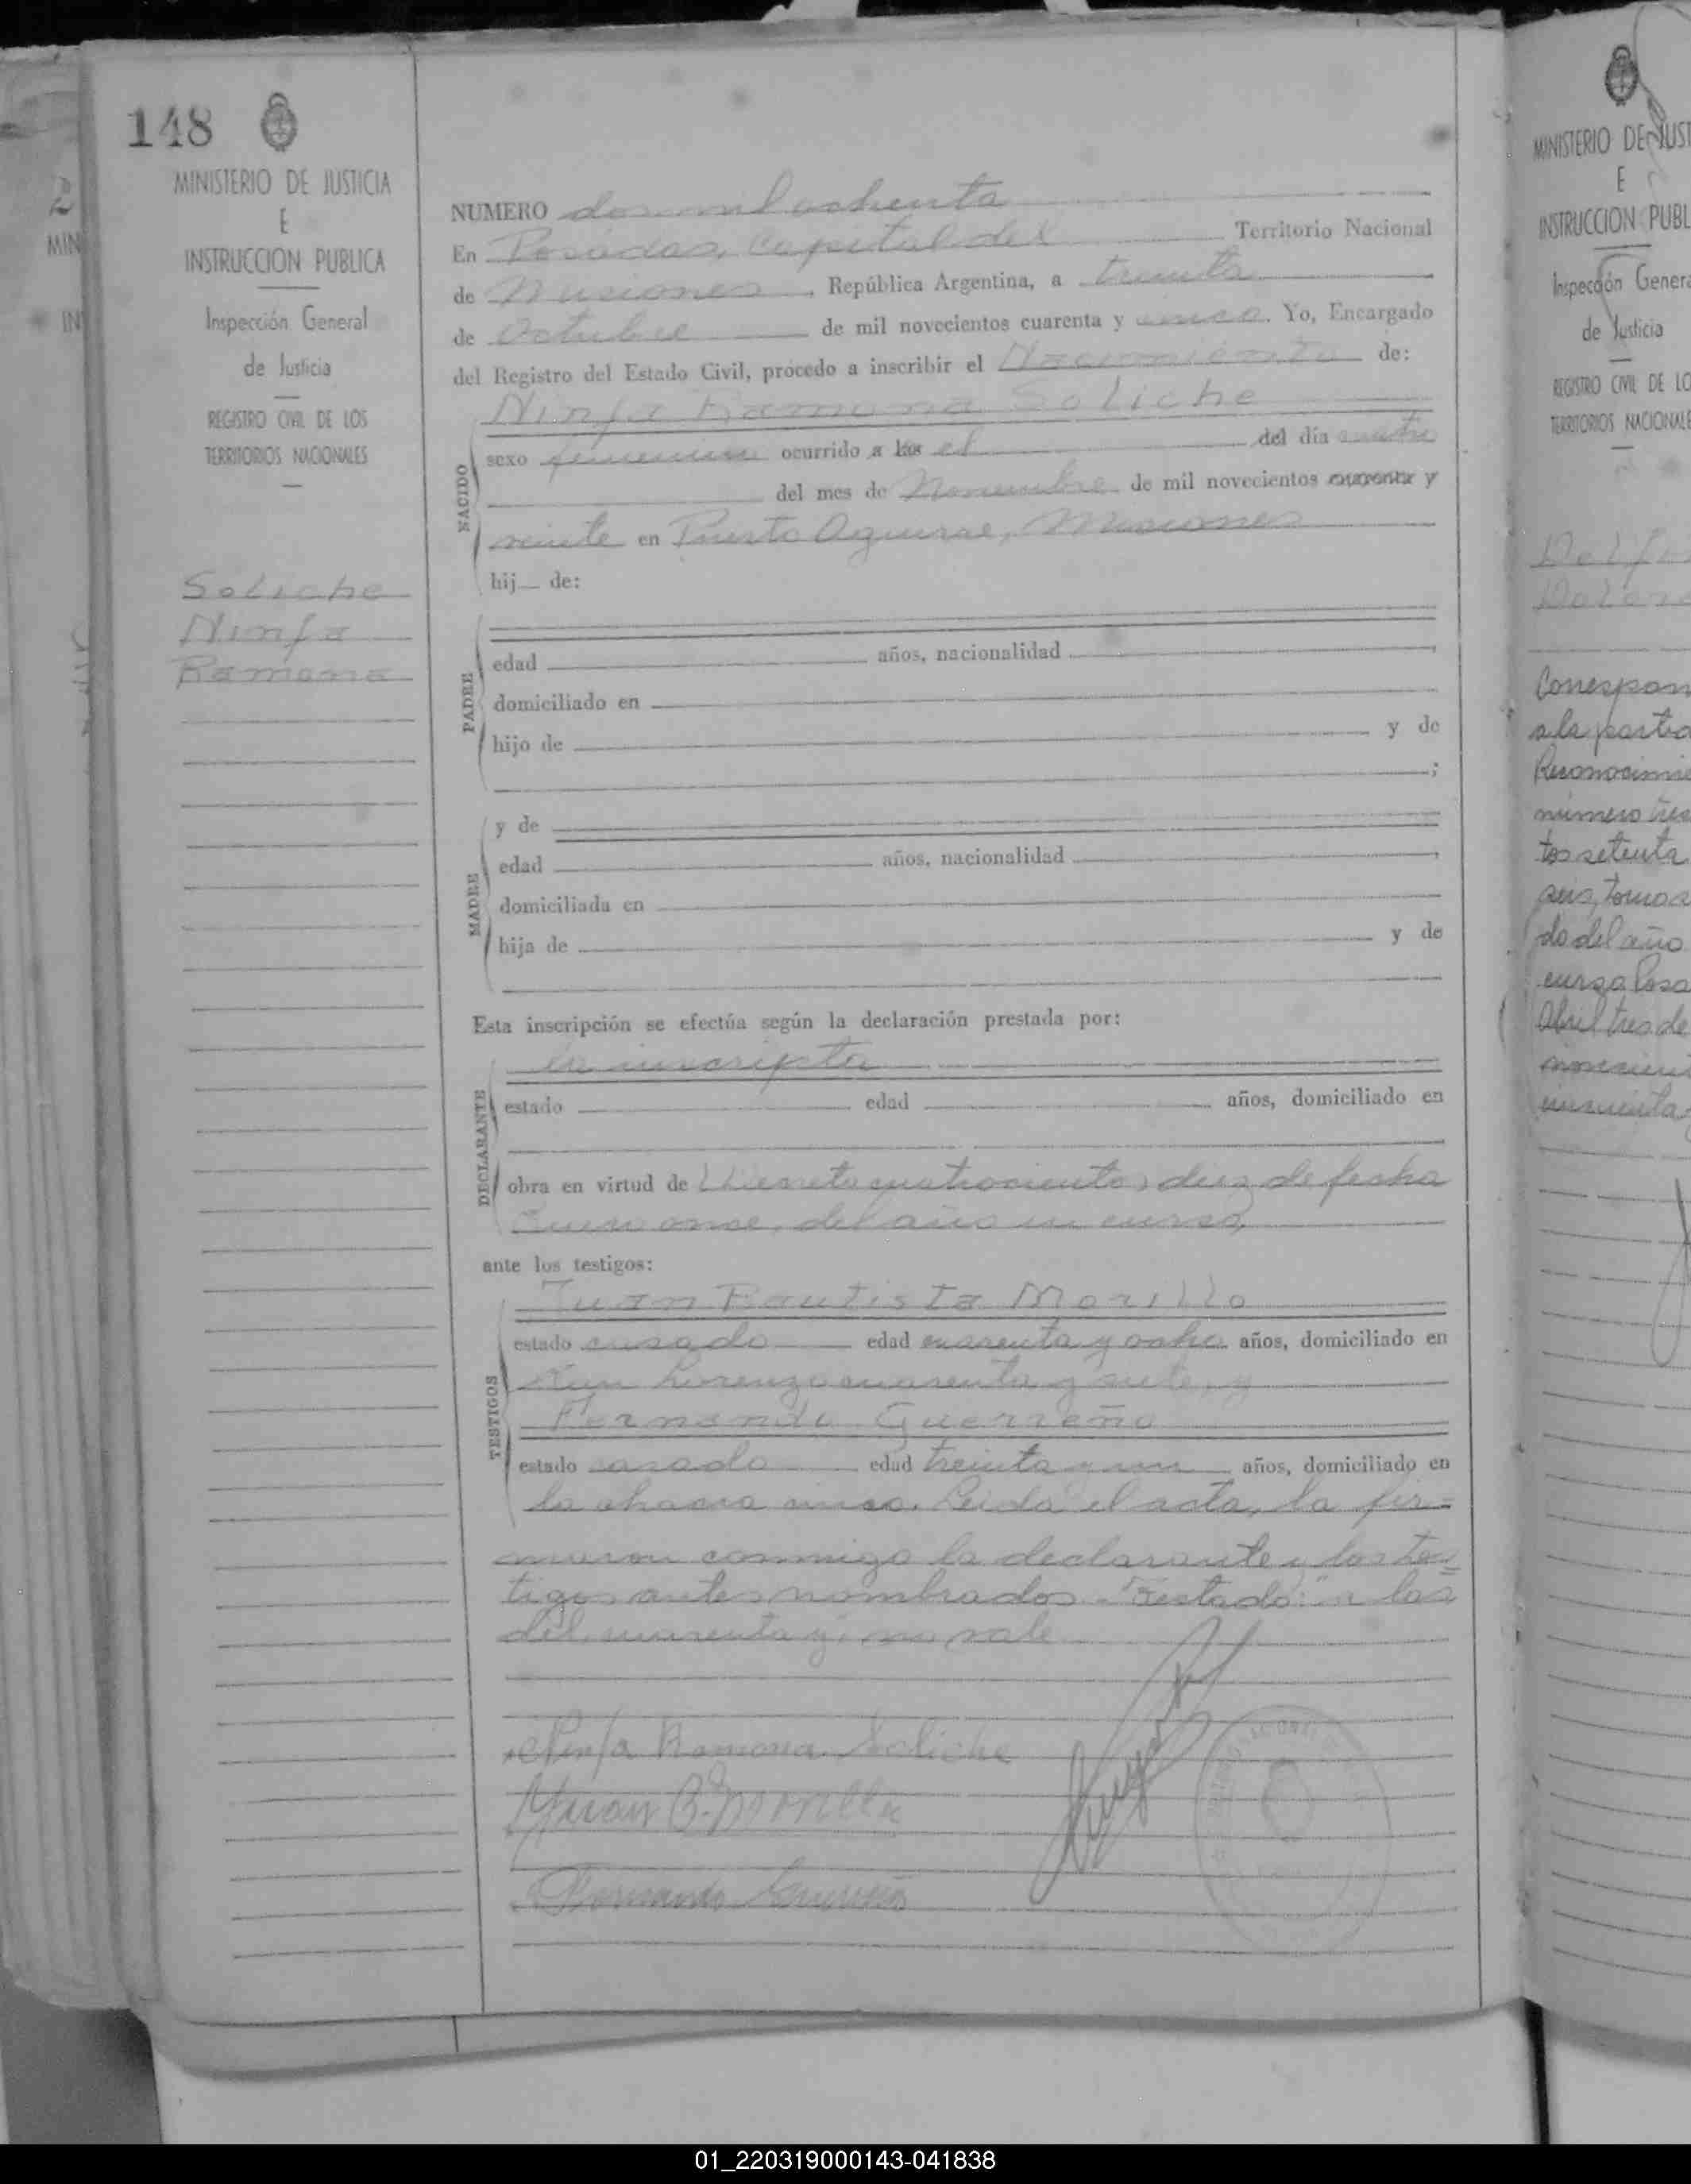 148
MINISTERIO DE JUSTICIA
E
INSTRUCCION PUBLICA
Inspección General
de Justicia
REGISTRO CIVIL DE LOS
TERRITORIOS NACIONALES
Soliche
Ninfa
Ramona
NUMERO dos mil ochenta
En Posadas, Capital del Territorio Nacional
de Misiones, República Argentina, a treinta
de Octubre de mil novecientos cuarenta y cinco. Yo, Encargado
del Registro del Estado Civil, procedo a inscribir el Nacimiento de:
Ninfa Ramona Soliche
NACIDO
sexo femenino ocurrido a las el del día cuatro
del mes de Noviembre de mil novecientos cuarenta y
veinte en Puerto Aguirre, Misiones
hij de:
PADRE
edad años, nacionalidad ,
domiciliado en
hijo de y de
;
MADRE
y de
edad años, nacionalidad ,
domiciliada en
hija de y de
Esta inscripción se efectúa según la declaración prestada por:
DECLARANTE
la inscripta
estado edad años, domiciliado en
obra en virtud de Decreto cuatrocientos diez de fecha
Enero once, del año en curso,
ante los testigos:
TESTIGOS
Juan Bautista Morillo
estado casado edad cuarenta y ocho años, domiciliado en
San Lorenzo cuarenta y siete, y
Fernando Guerreño
estado casado edad treinta y un años, domiciliado en
la chacra cinco. Leida el acta, la fir=
maron conmigo la declarante y los tes=
tigos antes nombrados. "Testado: "a las
del, cuarenta y: no vale
Ninfa Ramona Soliche
Juan B. Morillo
Fernando Guerreño
MINISTERIO DE JUST
E
INSTRUCCION PUBL
Inspección Genera
de Justicia
REGISTRO CIVIL DE LO
TERRITORIOS NACIONALE
Correspon
a la partid
Reconocimie
número tres
tos setenta
seis, tomo s
do del año
curso. Posa
Abril tres de
novecient
cincuenta
01_220319000143-041838